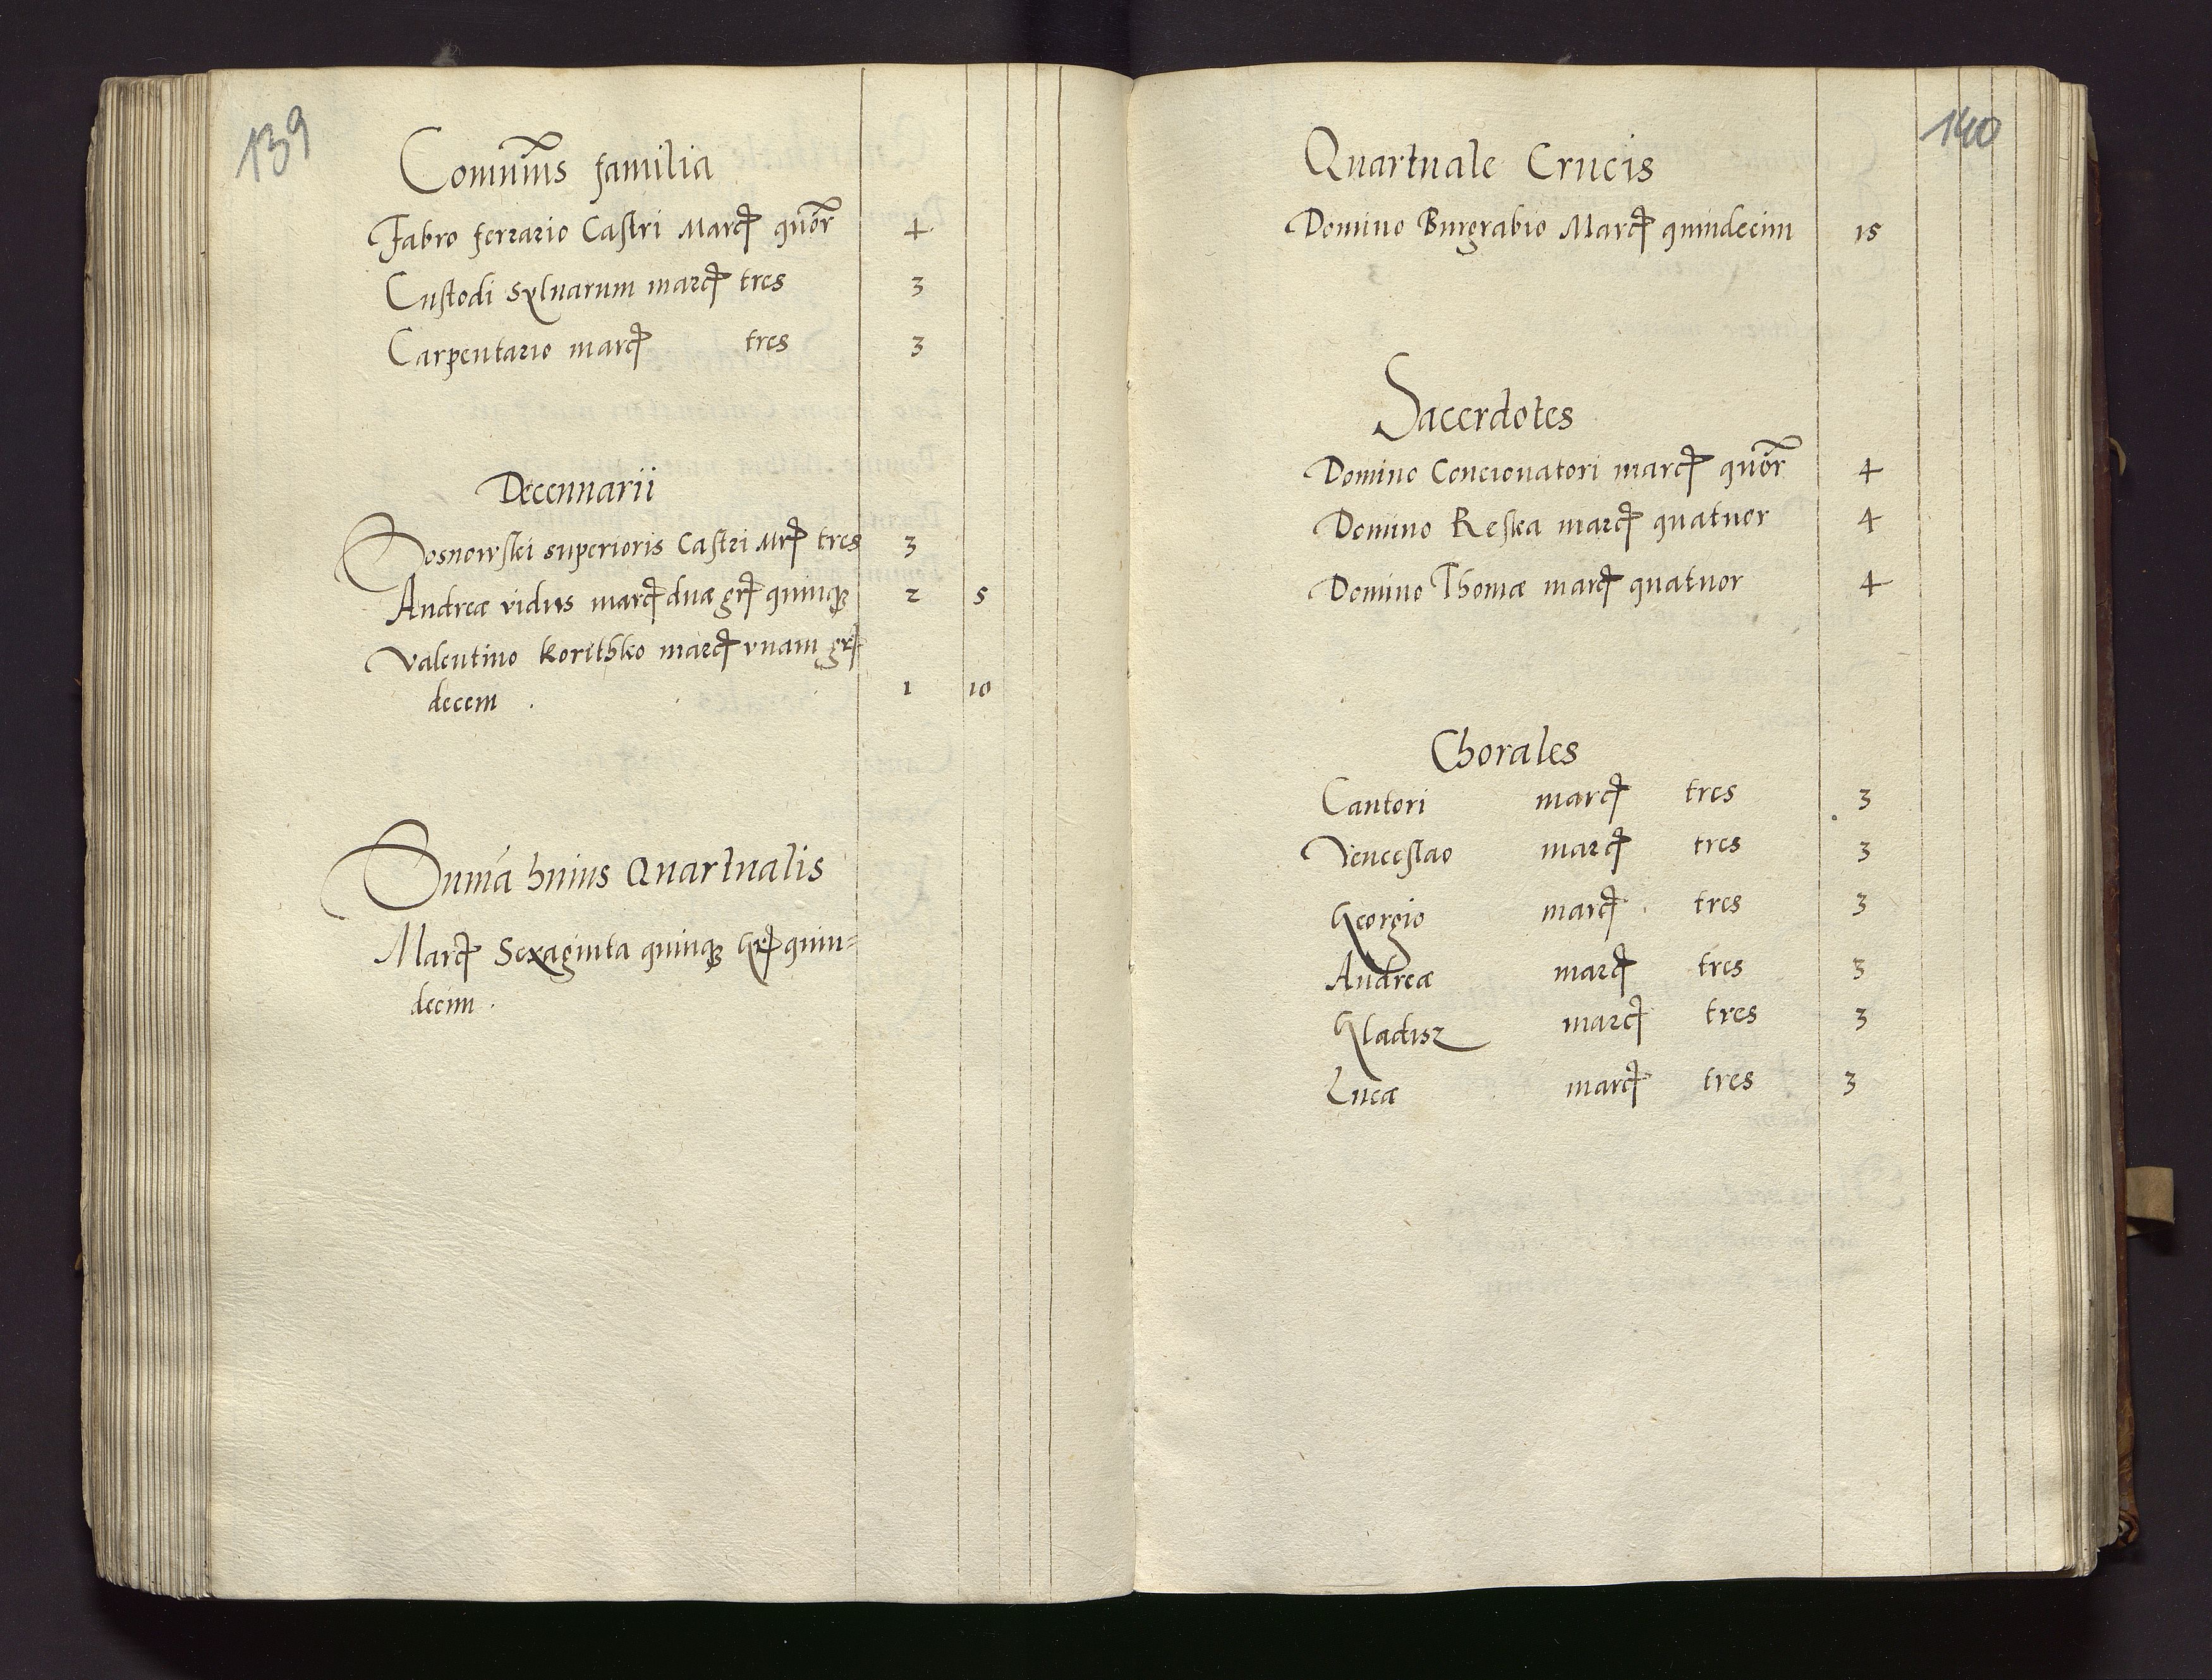 139
Comunis familia
Fabro ferrario Castri Marcȝ quor 4
Custodi Syluarum marcȝ tres 3
Carpentario marcȝ tres 3
Decennarii
Sosnowski superioris Castri Mrȝ tres 3
Andreæ vidus marcȝ duæ grȝ quinqȝ 2 5
Valentino Korithko marcȝ vnam grȝ
decem . 1 10
Suma huius Quartualis
Marcȝ Sexaginta quinqȝ Grȝ quin=
decim .
140
Quartuale Crucis
Domino Burgrabio Marcȝ quindecim 15
Sacerdotes
Domino Concionatori marcȝ quor 4
Domino Reska marcȝ quatuor 4
Domino Thomæ marcȝ quatuor 4
Chorales
Cantori marcȝ tres 3
Venceslao marcȝ tres 3
Georgio marcȝ tres 3
Andreæ marcȝ tres 3
Gladisz marcȝ tres 3
Lucæ marcȝ tres 3